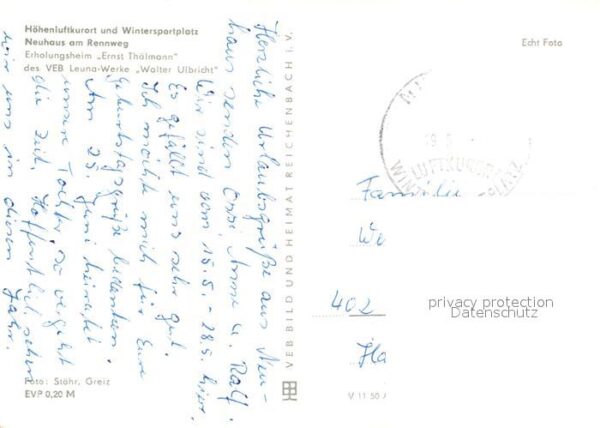 Höhenluftkurort und Wintersportplatz
Neuhaus am Rennweg
Erholungsheim „Ernst Thälmann“
des VEB Leuna-Werke „Walter Ulbricht“
Herzliche Urlaubsgrüße aus Neu-
haus senden Anne u. Ralf.
Wir sind vom 15.5. - 28.5. hier.
Es gefällt uns sehr gut.
Ich möchte mich für Eure
Geburtstagsgrüße bedanken.
Am 23. Juni heiratet
unsere Tochter. So vergeht
die Zeit. Hoffentlich sehen
wir uns in diesem Jahr.
Foto: Stöhr, Greiz
EVP 0,20 M
VEB BILD UND HEIMAT REICHENBACH i. V.
Echt Foto
19.5
LUFTKURORT
Familie
We
402
privacy protection
Datenschutz
Ha
V 11 50 A